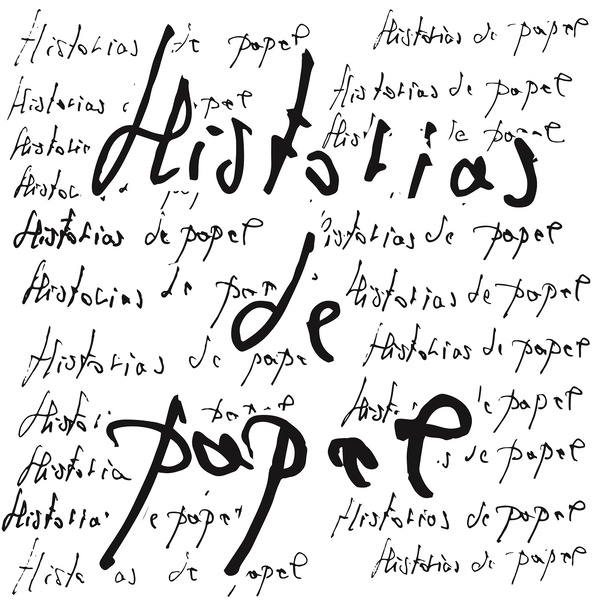 Historias de papel Historias de papel
Historias papel Historias de papel
Historias Historias de papel
Historias
de
papel
Historias de papel Historias de papel
Historias de Historias de papel
Historias de papel Historias de papel
Historias de papel
Historias de papel
Historias papel Historias de papel
de papel Historias de papel